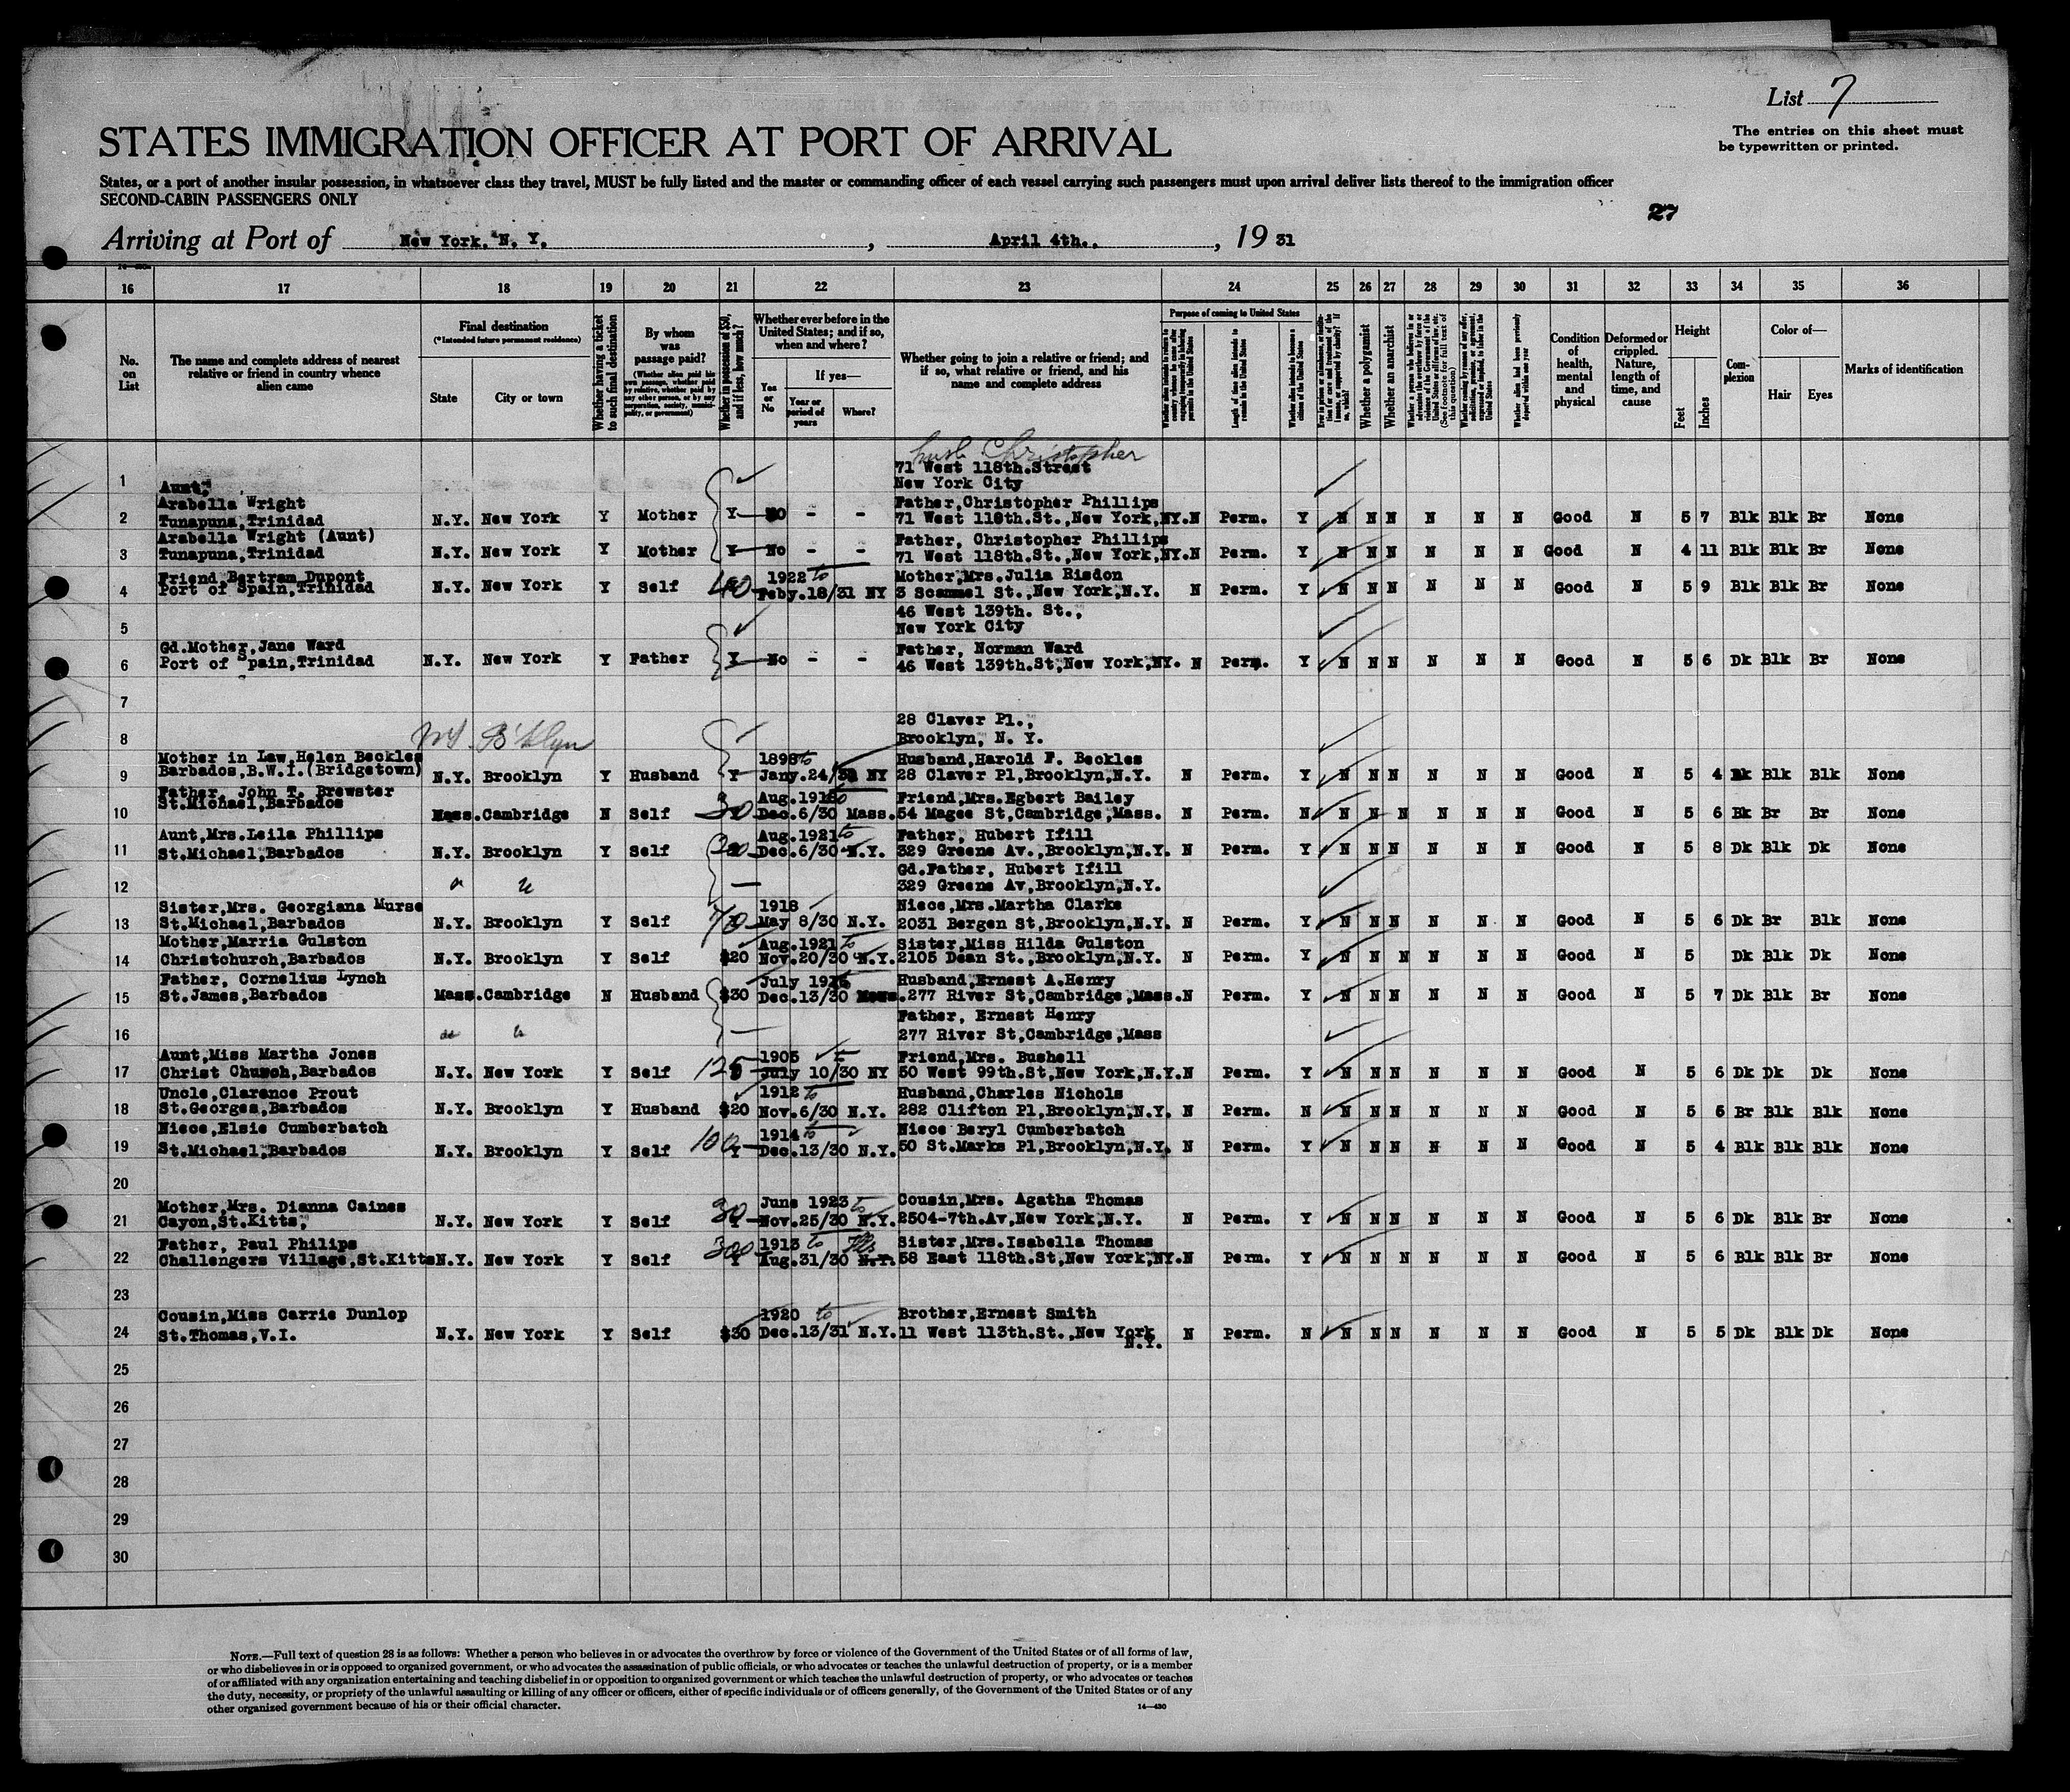 List 7
The entries on this sheet must
be typewritten or printed.
STATES IMMIGRATION OFFICER AT PORT OF ARRIVAL
States, or a port of another insular possession, in whatsoever class they travel, MUST be fully listed and the master or commanding officer of each vessel carrying such passengers must upon arrival deliver lists thereof to the immigration officer
SECOND-CABIN PASSENGERS ONLY
27
Arriving at Port of New York, N. Y. , April 4th., , 19 31
16 17 18 19 20 21 22 23 24 25 26 27 28 29 30 31 32 33 34 35 36
No. on List
The name and complete address of nearest relative or friend in country whence alien came
Final destination
(*Intended future permanent residence)
State
City or town
Whether having a ticket to such final destination
By whom was passage paid?
(Whether alien paid his own passage, whether paid by relative, whether paid by any other person, or by any corporation, society, municipality, or government)
Whether in possession of $50, and if less, how much?
Whether ever before in the United States; and if so, when and where?
Yes or No
If yes—
Year or period of years
Where?
Whether going to join a relative or friend; and if so, what relative or friend, and his name and complete address
Purpose of coming to United States
Length of time alien intends to remain in the United States
Whether alien intends to become a citizen of the United States
Whether a polygamist
Whether an anarchist
Whether alien had been previously deported within one year
Condition of health, mental and physical
Deformed or crippled. Nature, length of time, and cause
Height
Feet
Inches
Complexion
Color of—
Hair
Eyes
Marks of identification
husb Christopher
1 71 West 118th.Street
New York City
Aunt,
Arabella Wright
2 Tunapuna,Trinidad N.Y. New York Y Mother Y No - - Father,Christopher Phillips
71 West 118th.St.,New York,NY. N Perm. Y N N N N N N Good N 5 7 Blk Blk Br None
Arabella Wright (Aunt)
3 Tunapuna,Trinidad N.Y. New York Y Mother Y No - - Father, Christopher Phillips
71 West 118th.St.,New York,NY. N Perm. Y N N N N N N Good N 4 11 Blk Blk Br None
Friend,Bertram Dupont
4 Port of Spain,Trinidad N.Y. New York Y Self 40 1922 to
Feby.18/31 NY Mother,Mrs.Julia Risdon
3 Scammel St.,New York,N.Y. N Perm. Y N N N N N N Good N 5 9 Blk Blk Br None
5 46 West 139th. St.,
New York City
Gd.Mother,Jane Ward
6 Port of Spain,Trinidad N.Y. New York Y Father Y No - - Father, Norman Ward
46 West 139th.St,New York,NY. N Perm. Y N N N N N N Good N 5 6 Dk Blk Br None
7
8 NY B'klyn 28 Claver Pl.,
Brooklyn, N. Y.
Mother in Law,Helen Beckles
9 Barbados,B.W.I.(Bridgetown) N.Y. Brooklyn Y Husband Y 1898 to
Jany.24/ NY Husband,Harold F. Beckles
28 Claver Pl,Brooklyn,N.Y. N Perm. Y N N N N N N Good N 5 4 Blk Blk None
Father, John T. Brewster
10 St.Michael,Barbados Mass. Cambridge N Self 30 Aug.1918 to
Dec.6/30 Mass. Friend,Mrs.Egbert Bailey
54 Magee St,Cambridge,Mass. N Perm. N N N N N N N Good N 5 6 Bk Br Br None
Aunt,Mrs.Leila Phillips
11 St.Michael,Barbados N.Y. Brooklyn Y Self 20 Aug.1921 to
Dec.6/30 N.Y. Father, Hubert Ifill
329 Greene Av.,Brooklyn,N.Y. N Perm. Y N N N N N N Good N 5 8 Dk Blk Dk None
12 Gd.Father, Hubert Ifill
329 Greene Av,Brooklyn,N.Y.
Sister,Mrs. Georgiana Murse
13 St.Michael,Barbados N.Y. Brooklyn Y Self 70 1918
May 8/30 N.Y. Niece,Mrs.Martha Clarke
2031 Bergen St,Brooklyn,N.Y. N Perm. Y N N N N N N Good N 5 6 Dk Br Blk None
Mother,Marria Gulston
14 Christchurch,Barbados N.Y. Brooklyn Y Self $20 Aug.1921 to
Nov.20/30 N.Y. Sister,Miss Hilda Gulston
2105 Dean St.,Brooklyn,N.Y. N Perm. Y N N N N N N Good N 5 Dk Blk Dk None
Father, Cornelius Lynch
15 St.James,Barbados Mass. Cambridge N Husband $30 July
Dec.13/30 Mass. Husband,Ernest A.Henry
277 River St,Cambridge,Mass. N Perm. Y N N N N N N Good N 5 7 Dk Blk Br None
16 Father, Ernest Henry
277 River St,Cambridge,Mass
Aunt,Miss Martha Jones
17 Christ Church,Barbados N.Y. New York Y Self 125 1905
July 10/30 NY Friend,Mrs. Bushell
50 West 99th.St,New York,N.Y. N Perm. Y N N N N N N Good N 5 6 Dk Dk Dk None
Uncle,Clarence Prout
18 St.Georges,Barbados N.Y. Brooklyn Y Husband $20 1912 to
Nov.6/30 N.Y. Husband,Charles Nichols
282 Clifton Pl,Brooklyn,N.Y. N Perm. N N N N N N N Good N 5 6 Br Blk Blk None
Niece,Elsie Cumberbatch
19 St.Michael,Barbados N.Y. Brooklyn Y Self 100 1914 to
Dec.13/30 N.Y. Niece Beryl Cumberbatch
50 St.Marks Pl,Brooklyn,N.Y. N Perm. Y N N N N N N Good N 5 4 Blk Blk Blk None
20
Mother,Mrs. Dianna Caines
21 Cayon,St.Kitts, N.Y. New York Y Self 30 June 1923 to
Nov.25/30 N.Y. Cousin,Mrs. Agatha Thomas
2504-7th.Av,New York,N.Y. N Perm. Y N N N N N N Good N 5 6 Dk Blk Br None
Father, Paul Philips
22 Challengers Village,St.Kitts N.Y. New York Y Self 300 1913 to
Aug.31/30 N.Y. Sister,Mrs.Isabella Thomas
58 East 118th.St,New York,NY. N Perm. Y N N N N N N Good N 5 6 Blk Blk Br None
23
Cousin,Miss Carrie Dunlop
24 St.Thomas,V.I. N.Y. New York Y Self $30 1920 to
Dec.13/31 N.Y. Brother,Ernest Smith
11 West 113th.St.,New York
N.Y. N Perm. N N N N N N N Good N 5 5 Dk Blk Dk None
25
26
27
28
29
30
NOTE.—Full text of question 28 is as follows: Whether a person who believes in or advocates the overthrow by force or violence of the Government of the United States or of all forms of law,
or who disbelieves in or is opposed to organized government, or who advocates the assassination of public officials, or who advocates or teaches the unlawful destruction of property, or is a member
of or affiliated with any organization entertaining and teaching disbelief in or opposition to organized government or which teaches the unlawful destruction of property, or who advocates or teaches
the duty, necessity, or propriety of the unlawful assaulting or killing of any officer or officers, either of specific individuals or of officers generally, of the Government of the United States or of any
other organized government because of his or their official character.
14—430